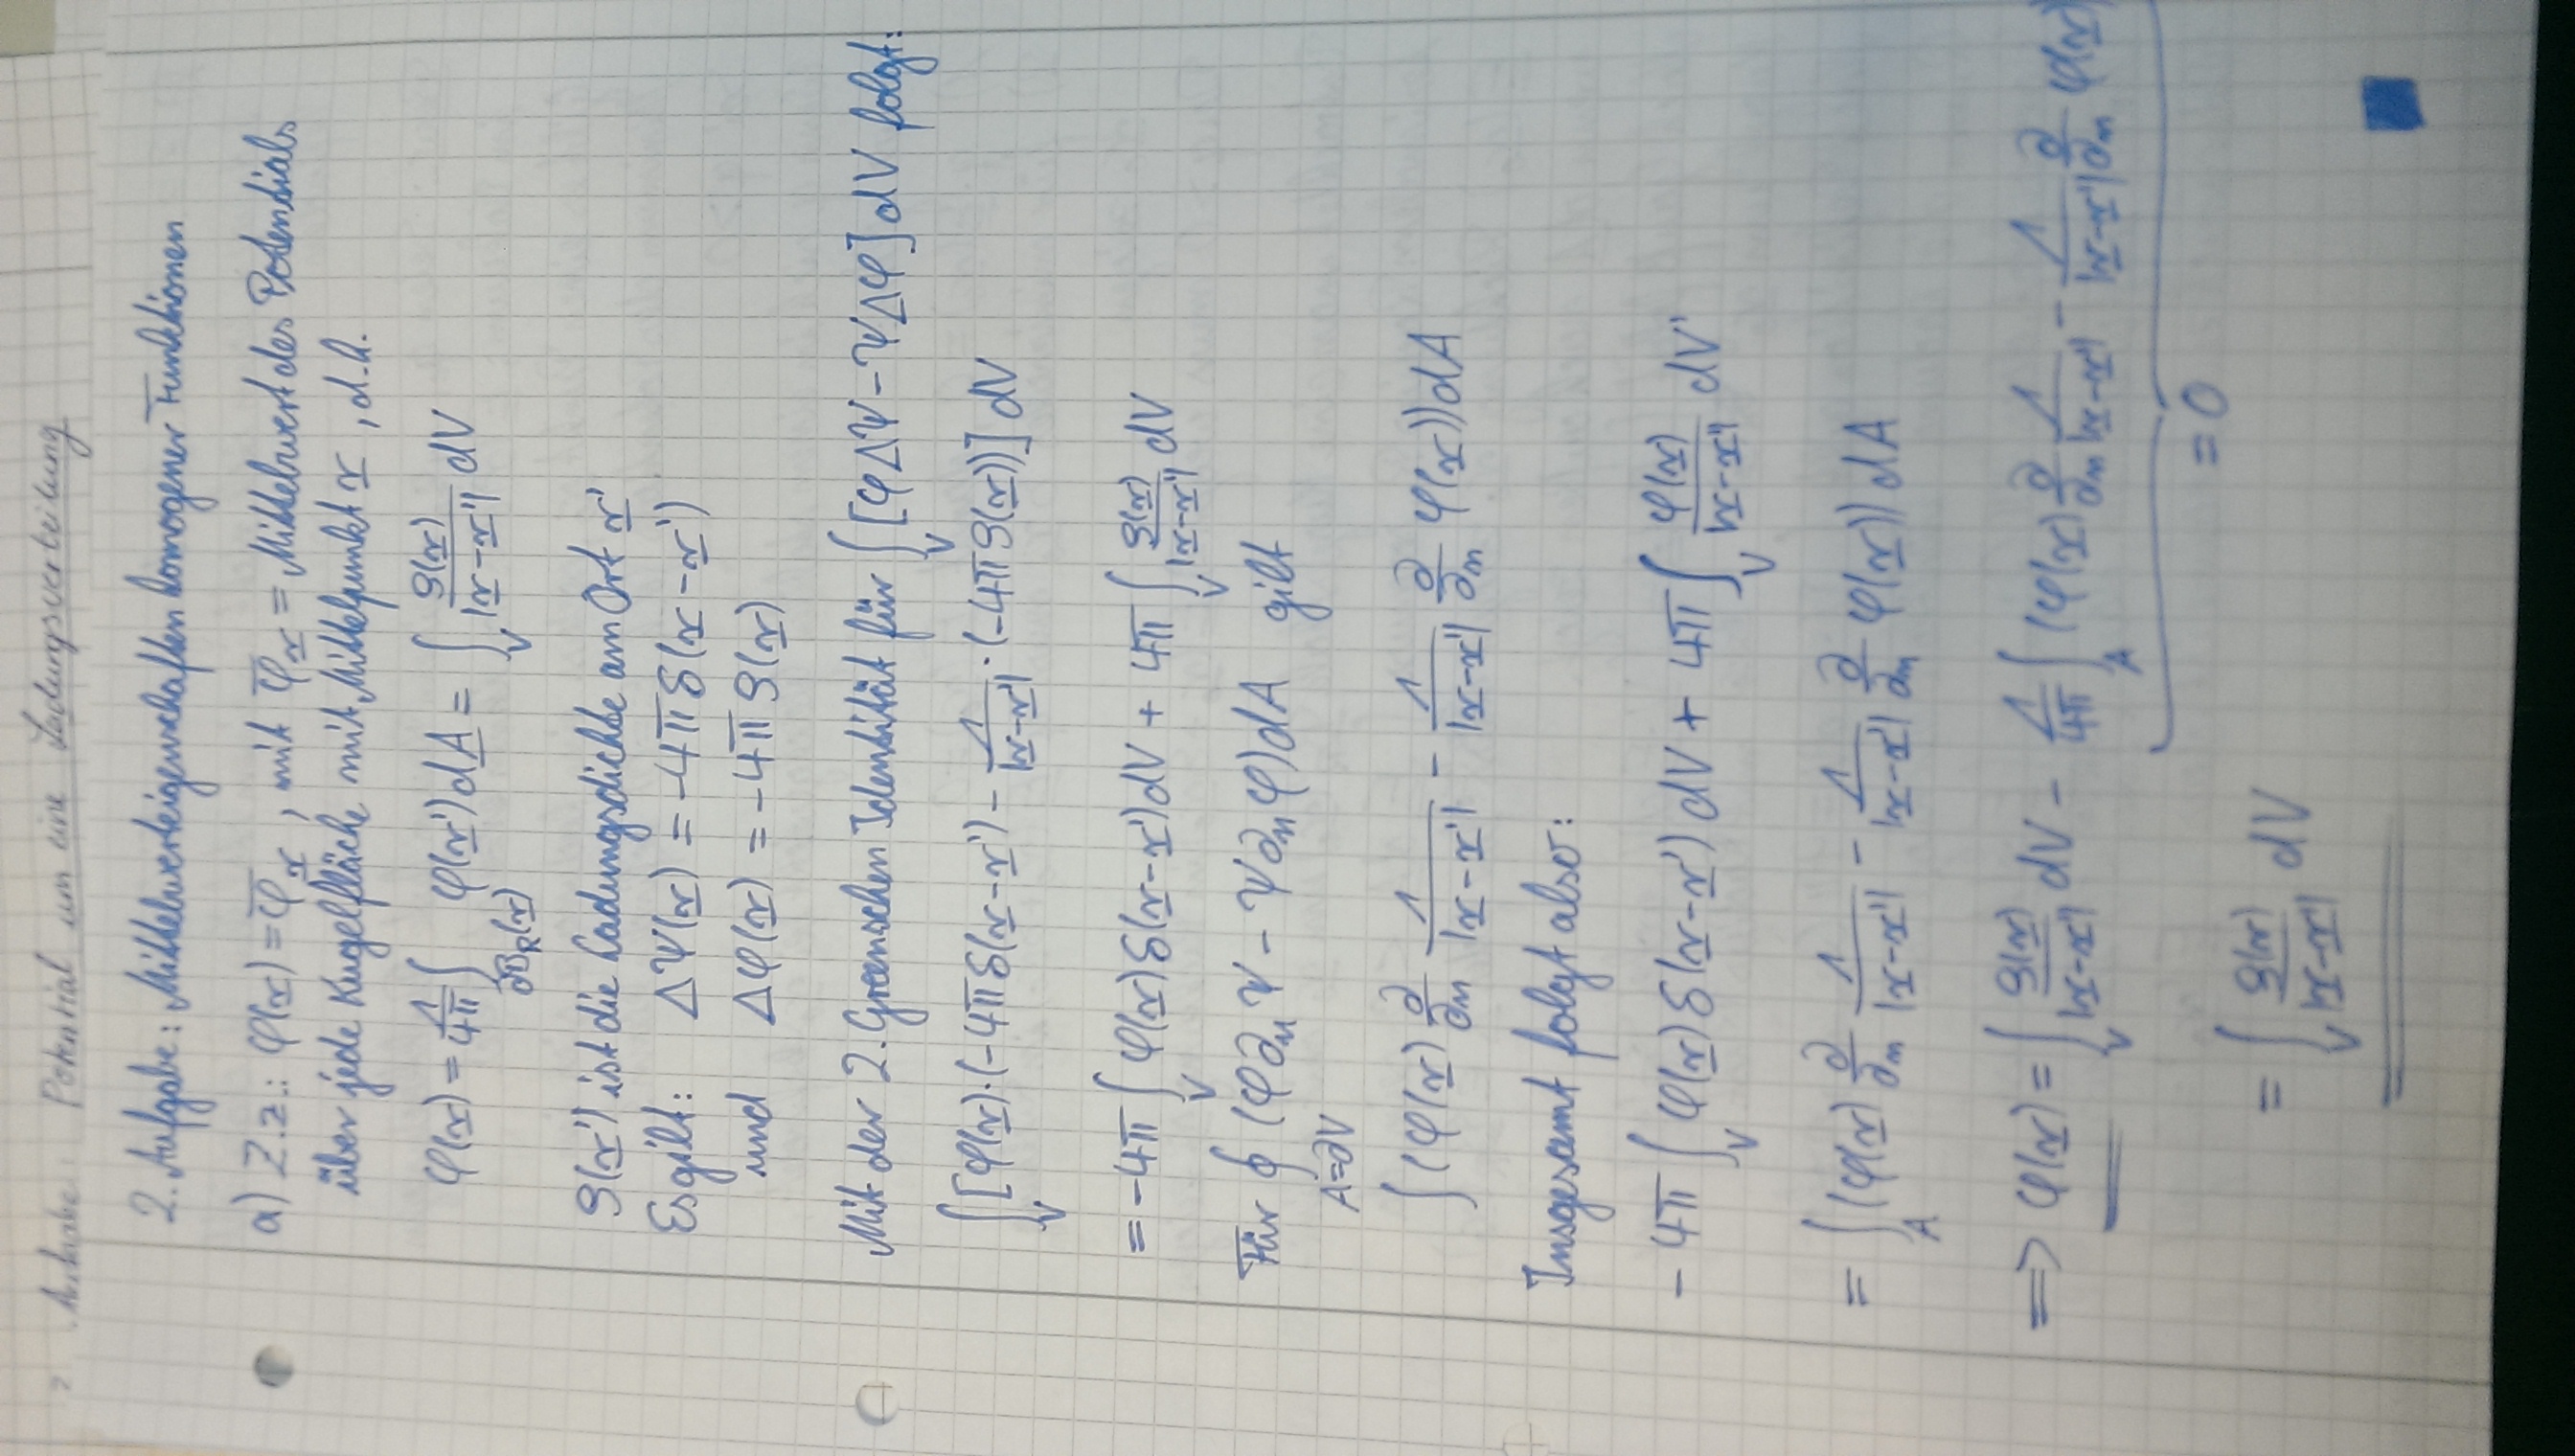 Potential um eine Ladungsverteilung
2. Aufgabe: Mittelwerteigenschaften homogener Funktionen
a) Z.z.: φ(r) = φ̅_r, mit φ̅_r = Mittelwert des Potentials
über jede Kugelfläche mit Mittelpunkt r, d.h.
φ(r) = 1/4π ∫_{∂B_R(r)} φ(r')dA = ∫_V ρ(r)/|r-r'| dV
ρ(r') ist die Ladungsdichte am Ort r'
Es gilt: ΔΨ(r) = -4π δ(r-r')
und Δφ(r) = -4π ρ(r)
Mit der 2. Greenschen Identität für ∫_V [φΔΨ - ΨΔφ] dV folgt:
∫_V [φ(r)·(-4π δ(r-r') - 1/|r-r'| ·(-4π ρ(r))] dV
= -4π ∫_V φ(r) δ(r-r')dV + 4π ∫_V ρ(r)/|r-r'| dV
Für ∮_{A=∂V} (φ∂_nΨ - Ψ∂_nφ)dA gilt
∫ (φ(r) ∂/∂n 1/|r-r'| - 1/|r-r'| ∂/∂n φ(r))dA
Insgesamt folgt also:
- 4π ∫_V φ(r) δ(r-r') dV + 4π ∫_V φ(r)/|r-r'| dV'
= ∫_A (φ(r) ∂/∂n 1/|r-r'| - 1/|r-r'| ∂/∂n φ(r)) dA
⇒ φ(r) = ∫_V ρ(r)/|r-r'| dV - 1/4π ∫_A (φ(r) ∂/∂n 1/|r-r'| - 1/|r-r'| ∂/∂n φ(r)
= 0
= ∫_V ρ(r)/|r-r'| dV